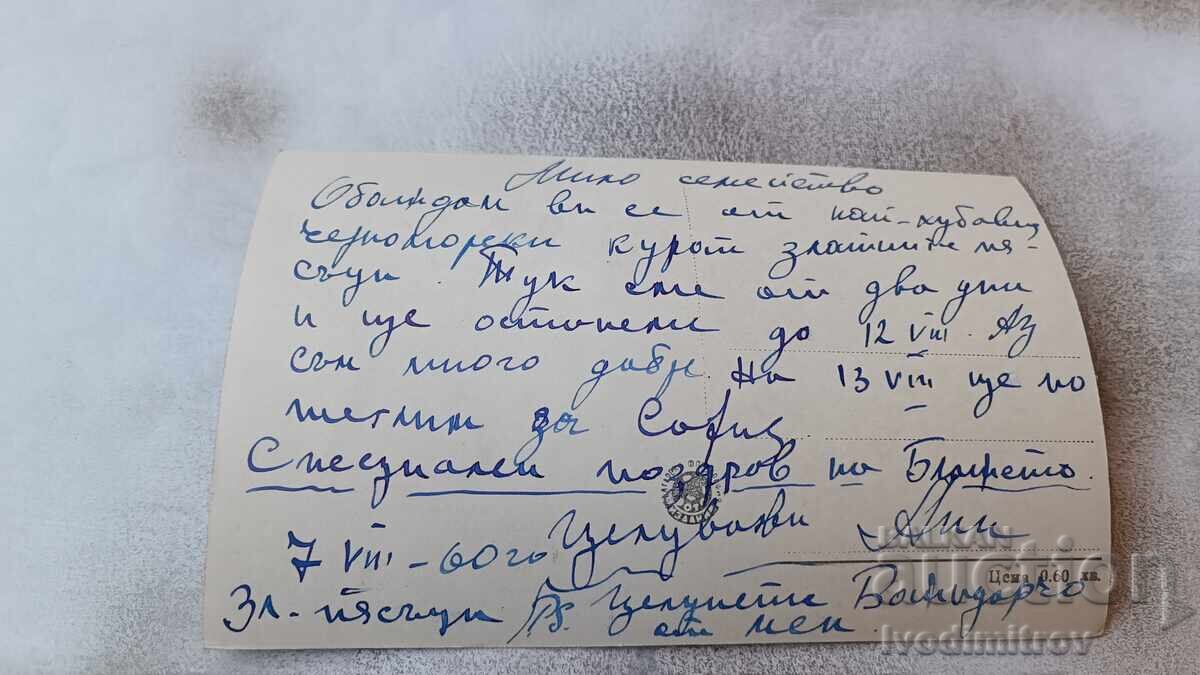 Мило семейство
Обаждам ви се от най-хубавия
черноморски курорт златните пя-
съци. Тук сме от два дни
и ще останем до 12 VIII. Аз
съм много добре. На 13 VIII ще по
теглим за София
Специален поздрав на
Целувки Ани
7 VIII - 60 го
Цена 0.60 лв.
Зл. пясъци Целунете Божидарчо
от мен.
BALKAN
auction
Ivodimitrov